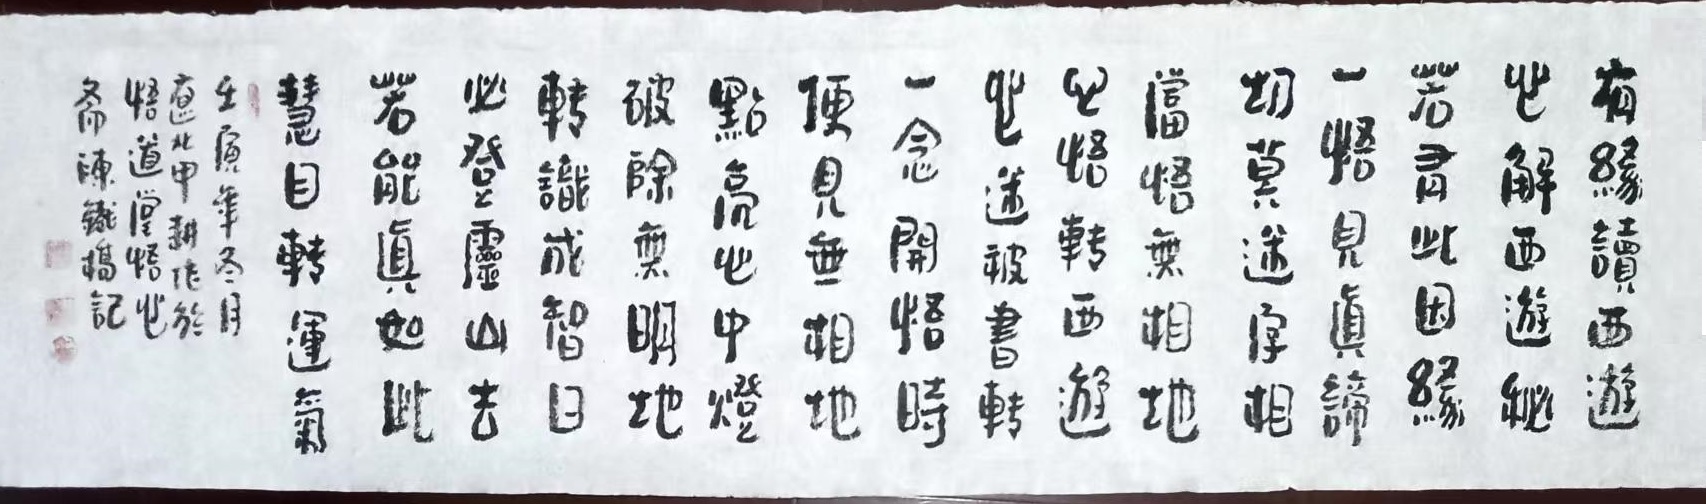 有緣讀西遊
心解西遊秘
若有此因緣
一悟見真諦
切莫迷字相
當悟無相地
心悟轉西遊
心迷被書轉
一念開悟時
便見無相地
點亮心中燈
破除無明地
轉識成智日
必登靈山去
若能真如此
慧目轉運氣
壬寅年冬月
遼北甲耕作於
悟道堂悟心
齋陳鐵楊記